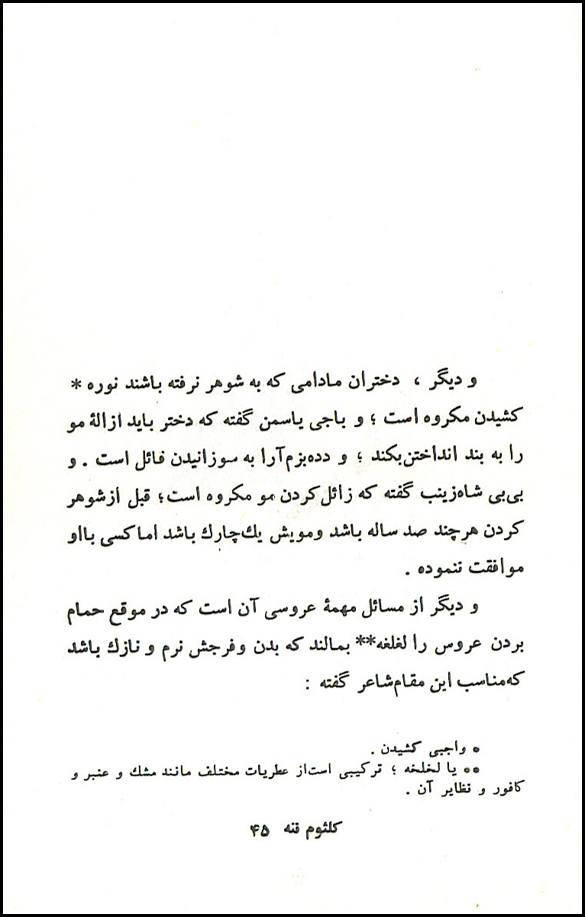 و دیگر ، دختران مادامی که به شوهر نرفته باشند نوره *
کشیدن مکروه است ؛ و باجی یاسمن گفته که دختر باید ازالهٔ مو
را به بند انداختن‌بکند ؛ و دده‌بزم‌آرا به سوزانیدن قائل است . و
بی‌بی شاه‌زینب گفته که زائل‌کردن مو مکروه است؛ قبل ازشوهر
کردن هرچند صد ساله باشد ومویش یك‌چارك باشد اماکسی بااو
موافقت ننموده .
و دیگر از مسائل مهمهٔ عروسی آن است که در موقع حمام
بردن عروس را لغلغه** بمالند که بدن وفرجش نرم و نازك باشد
که‌مناسب این مقام‌شاعر گفته :
* واجبی کشیدن .
** یا لخلخه ؛ ترکیبی است‌از عطریات مختلف مانند مشك و عنبر و
کافور و نظایر آن .
کلثوم ننه ۴۵